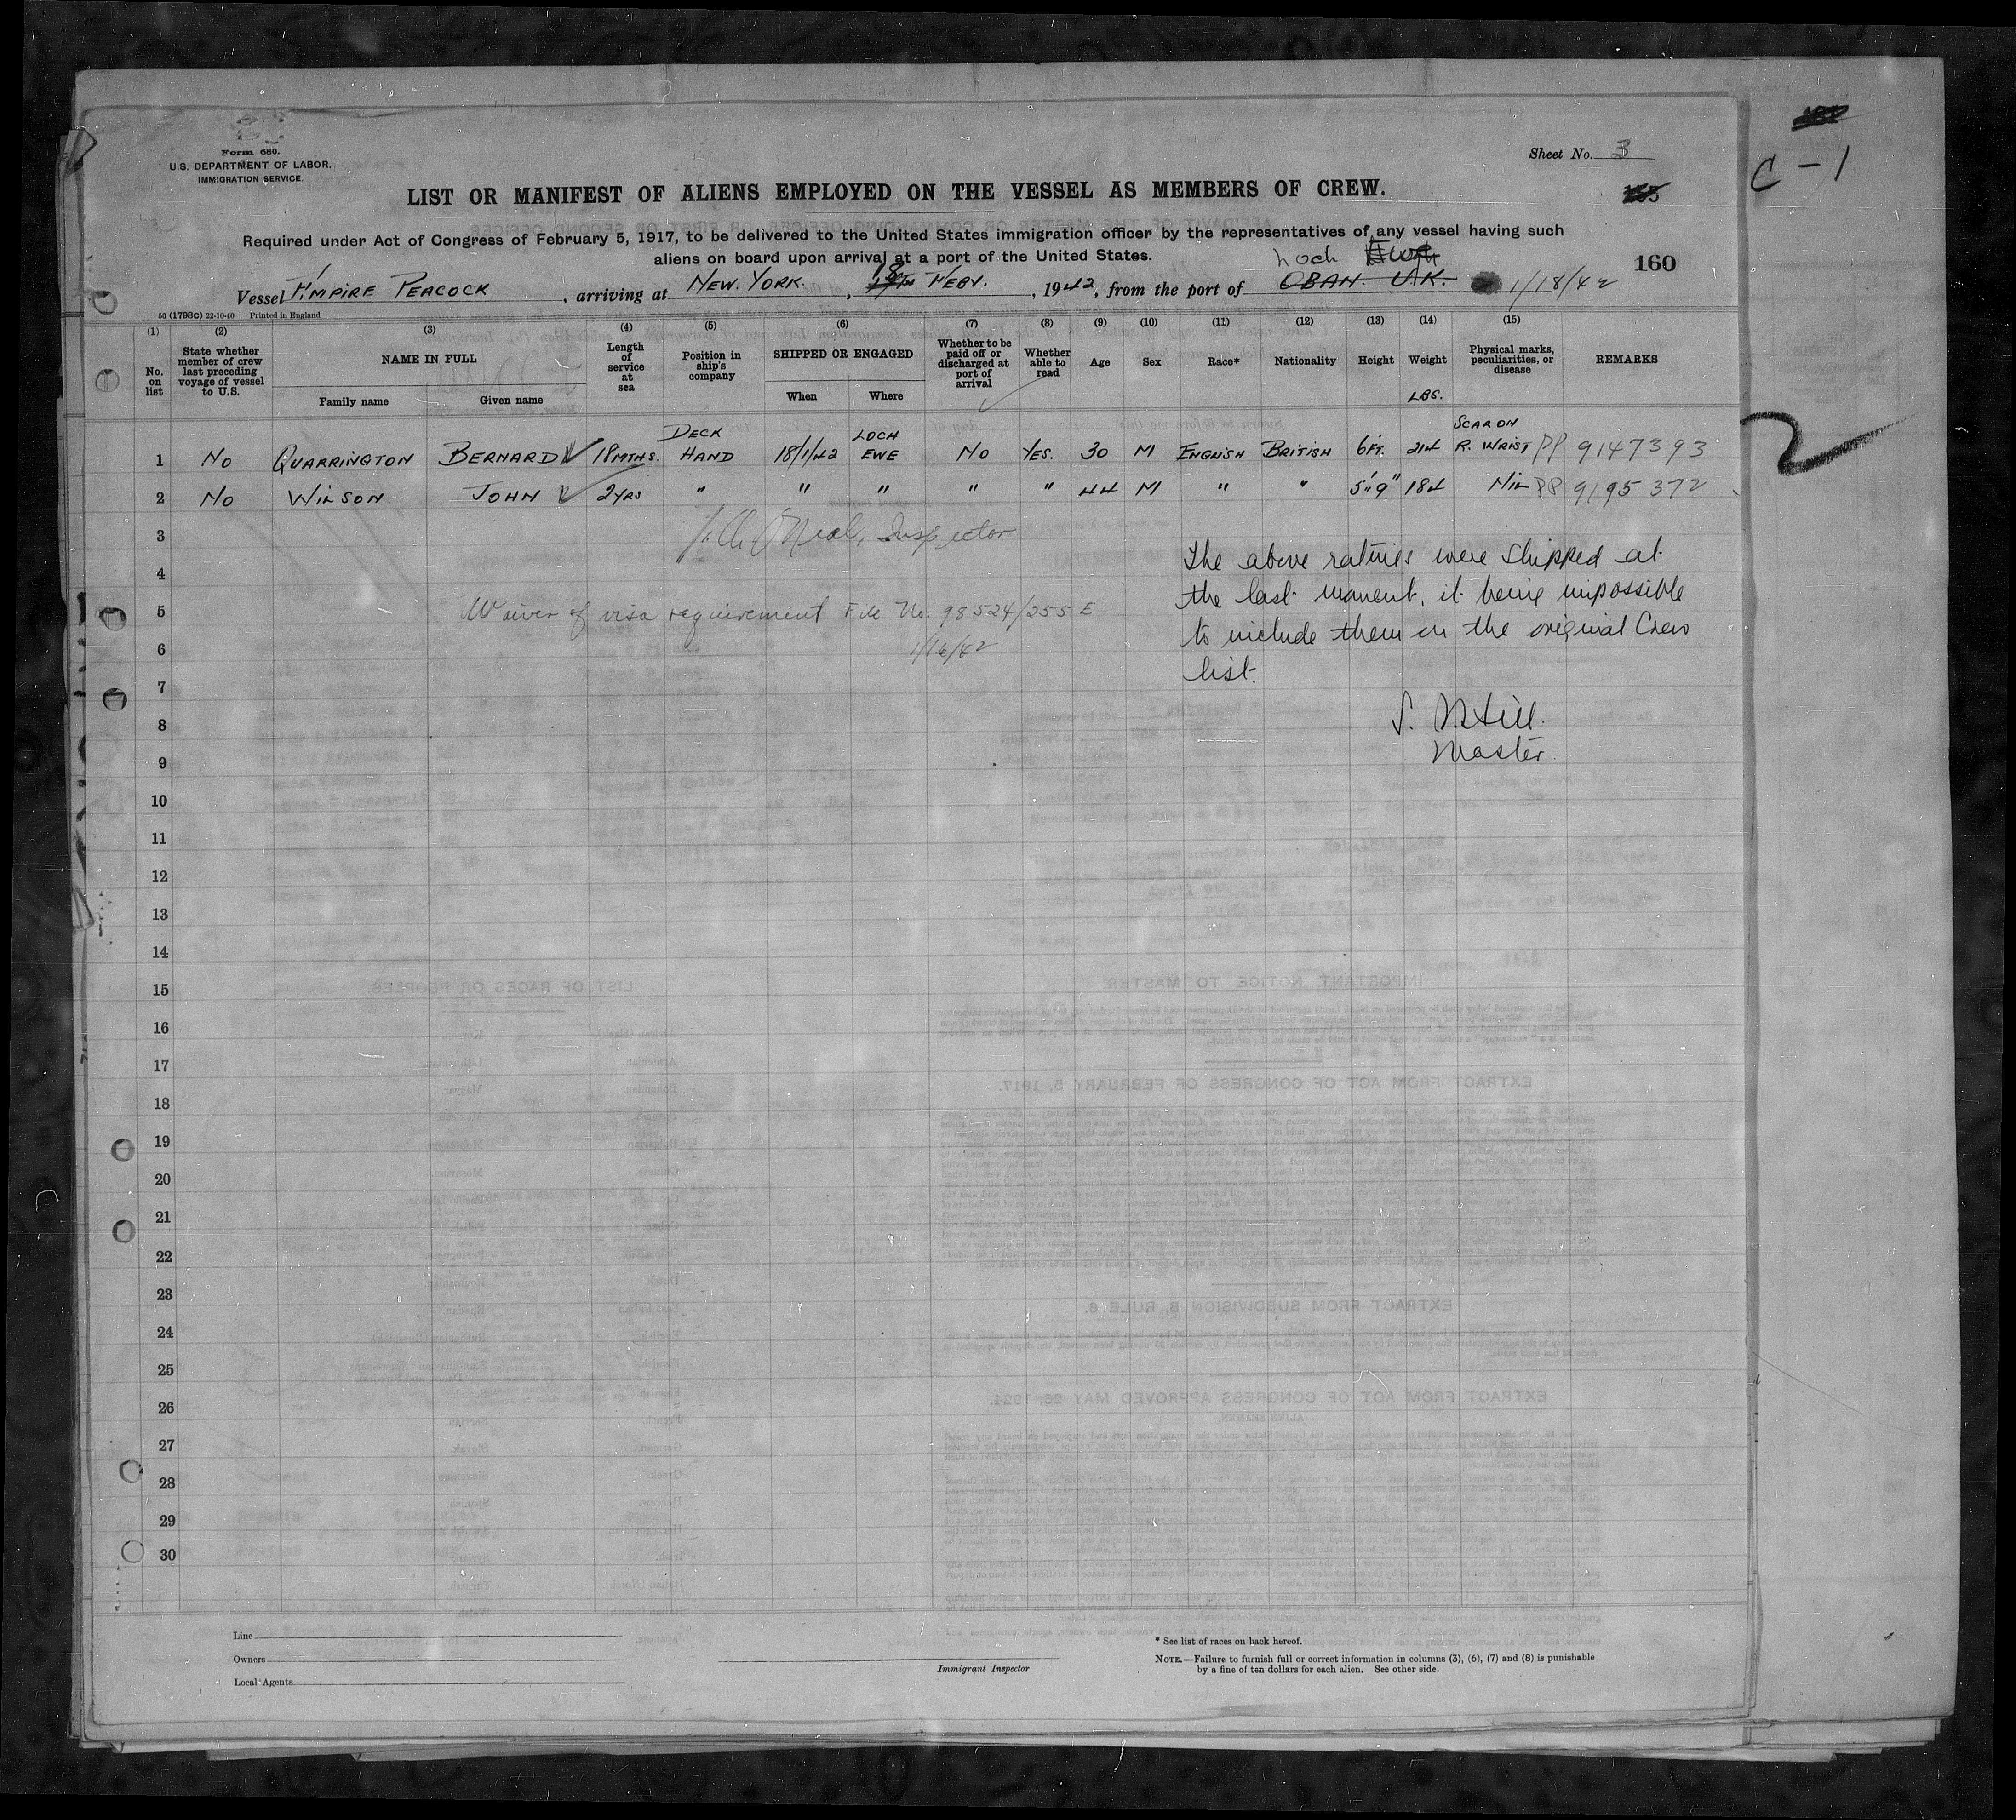 Form 680.
U.S. DEPARTMENT OF LABOR.
IMMIGRATION SERVICE.
Sheet No. 3
C-1
LIST OR MANIFEST OF ALIENS EMPLOYED ON THE VESSEL AS MEMBERS OF CREW.
Required under Act of Congress of February 5, 1917, to be delivered to the United States immigration officer by the representatives of any vessel having such
aliens on board upon arrival at a port of the United States.
160
Loch Ewe
Vessel EMPIRE PEACOCK, arriving at NEW. YORK., 18 FEBY., 1942, from the port of OBAN. U.K. 1/18/42
50 (1798c) 22-10-40 Printed in England
(1) (2) (3) (4) (5) (6) (7) (8) (9) (10) (11) (12) (13) (14) (15)
No. on list
State whether member of crew last preceding voyage of vessel to U.S.
NAME IN FULL
Family name Given name
Length of service at sea
Position in ship's company
SHIPPED OR ENGAGED
When Where
Whether to be paid off or discharged at port of arrival
Whether able to read
Age
Sex
Race*
Nationality
Height
Weight
LBS.
Physical marks, peculiarities, or disease
REMARKS
1 No QUARRINGTON BERNARD 18 MTHS. DECK HAND 18/1/42 LOCH EWE No YES. 30 M ENGLISH BRITISH 6FT. 214 SCAR ON R. WRIST PP 9147393
2 No WILSON JOHN 2 YRS " " " " " 44 M " " 5'9" 184 NIL PP 9195372
2
3
Inspector
4
5
Waiver of visa requirement File No. 98524/255 E
6
1/16/42
The above ratings were shipped at
the last moment, it being impossible
to include them on the original Crew
list.
Master.
7
8
9
10
11
12
13
14
15
16
17
18
19
20
21
22
23
24
25
26
27
28
29
30
Line
Owners
Local Agents
Immigrant Inspector
* See list of races on back hereof.
NOTE.—Failure to furnish full or correct information in columns (3), (6), (7) and (8) is punishable
by a fine of ten dollars for each alien. See other side.